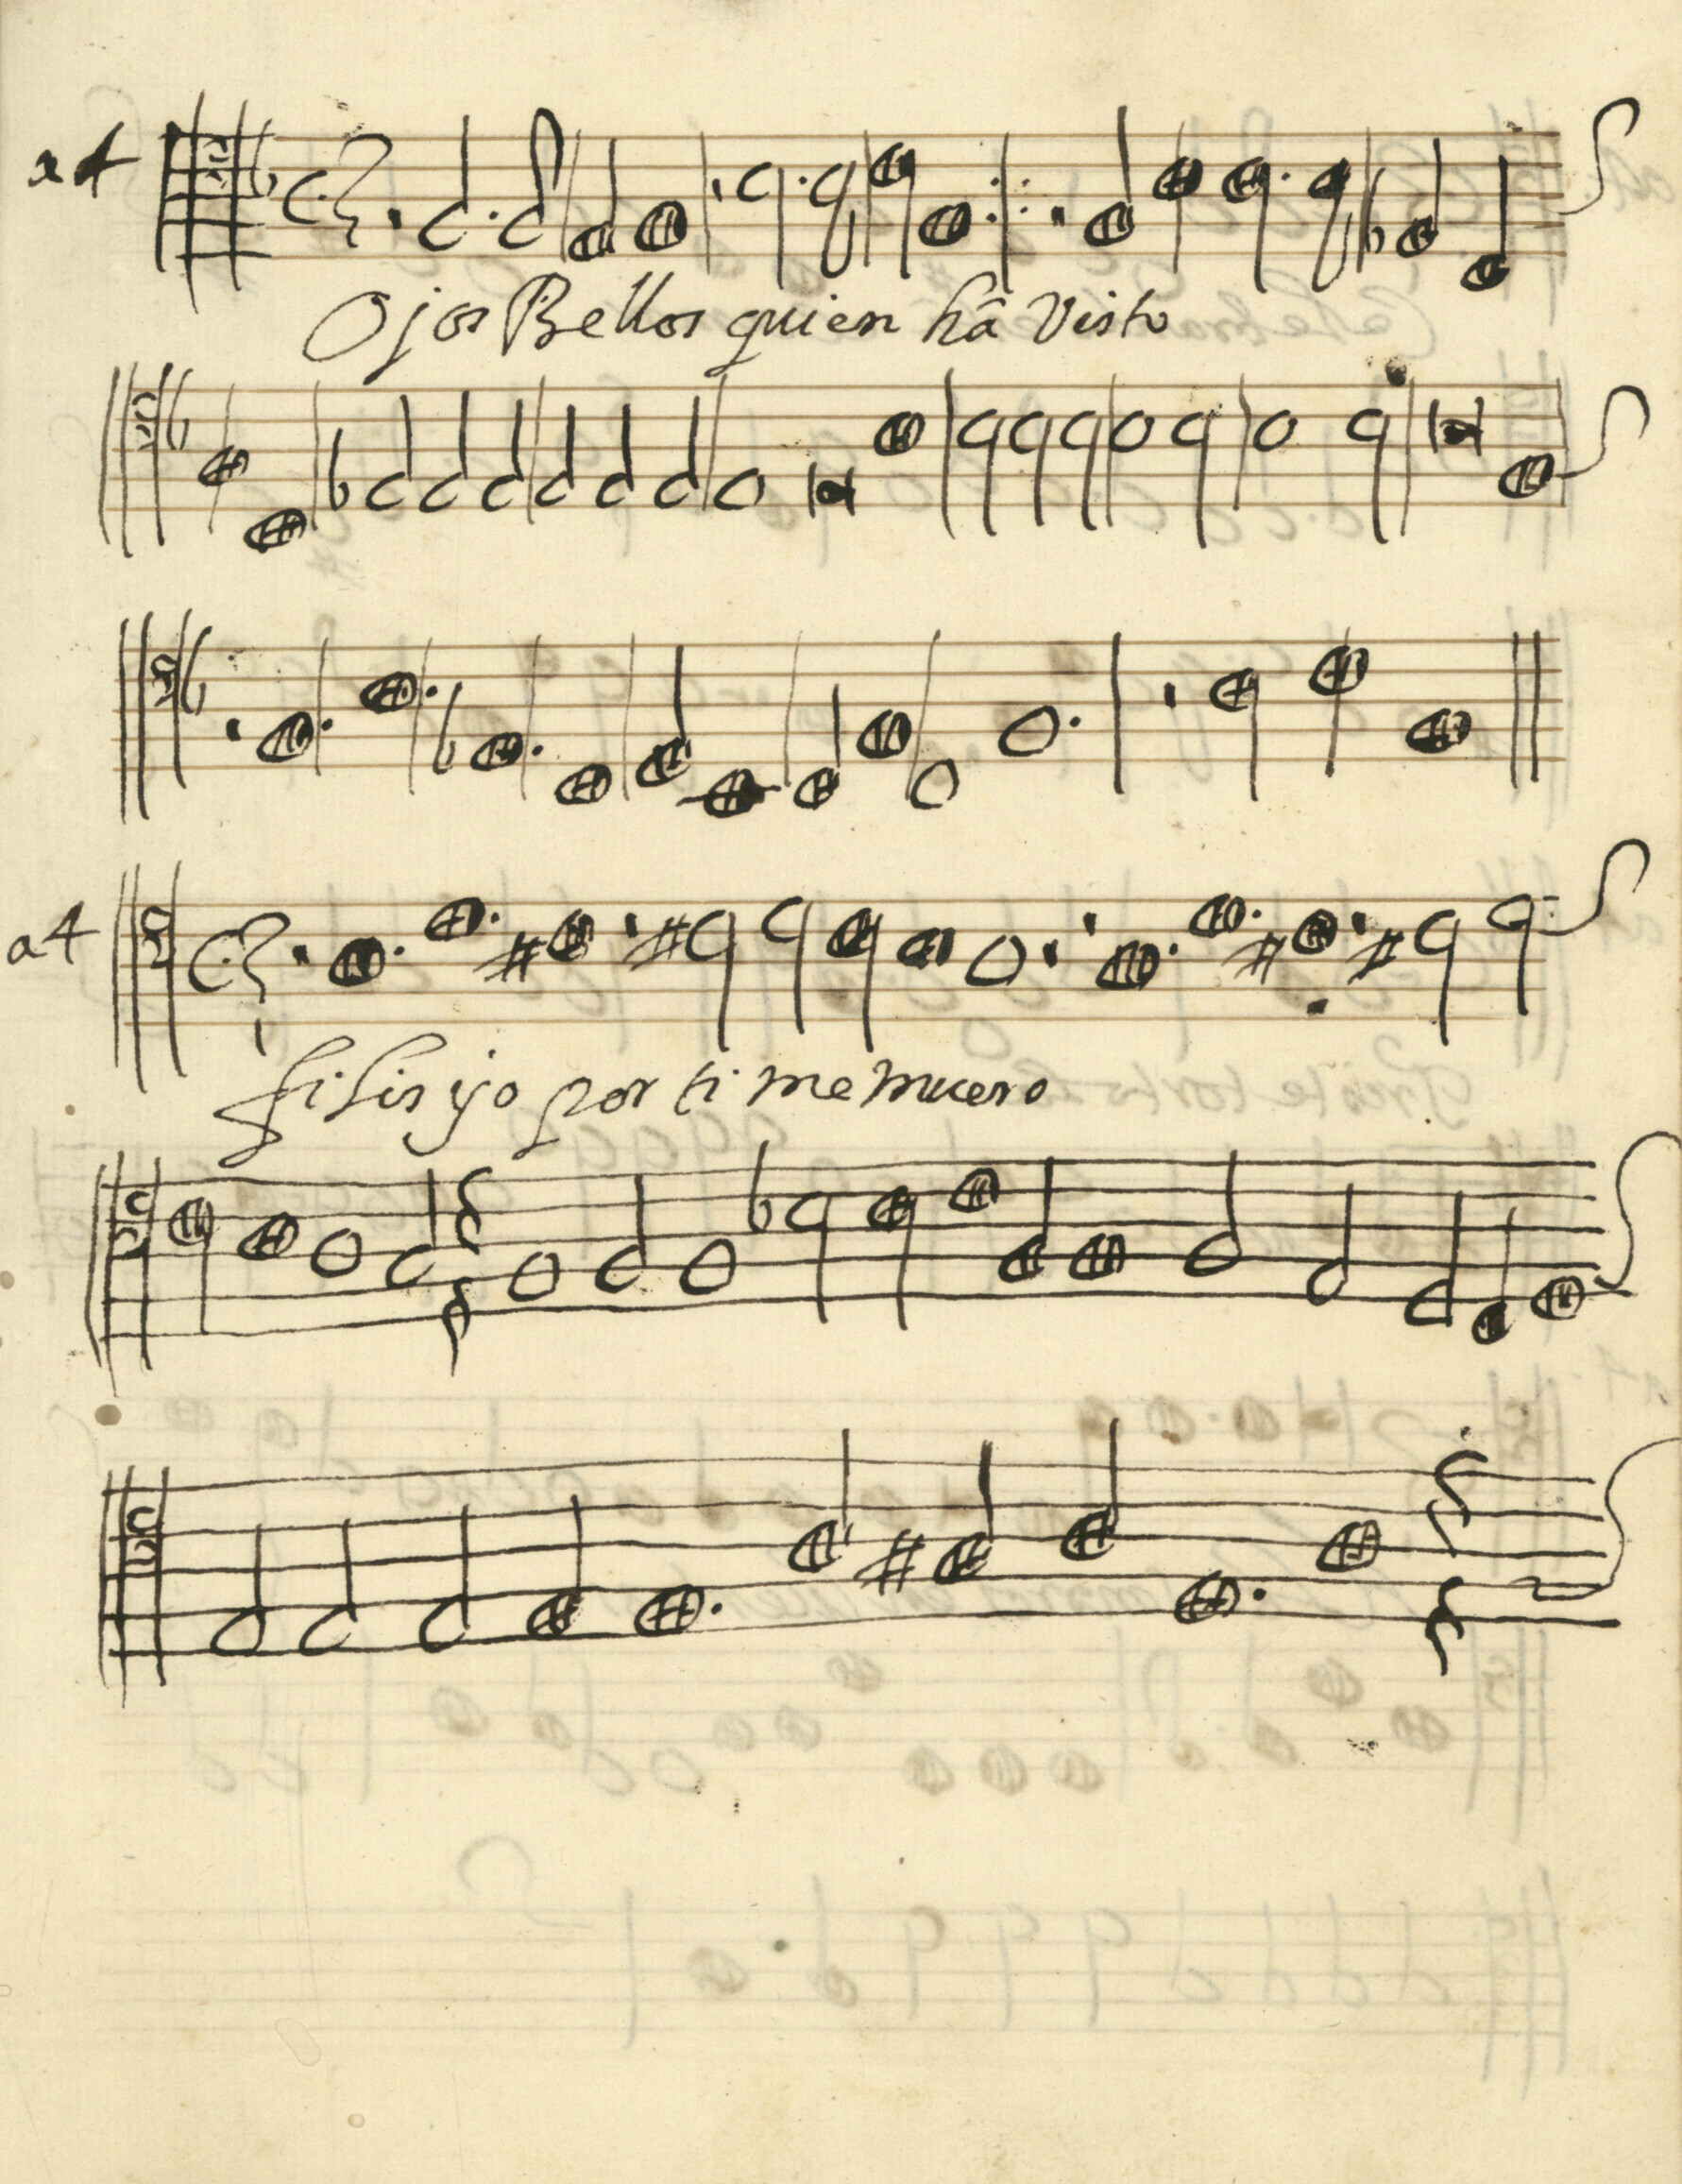 a4
Ojos Bellos quien hâ Visto
a4
filis yo por ti me muero